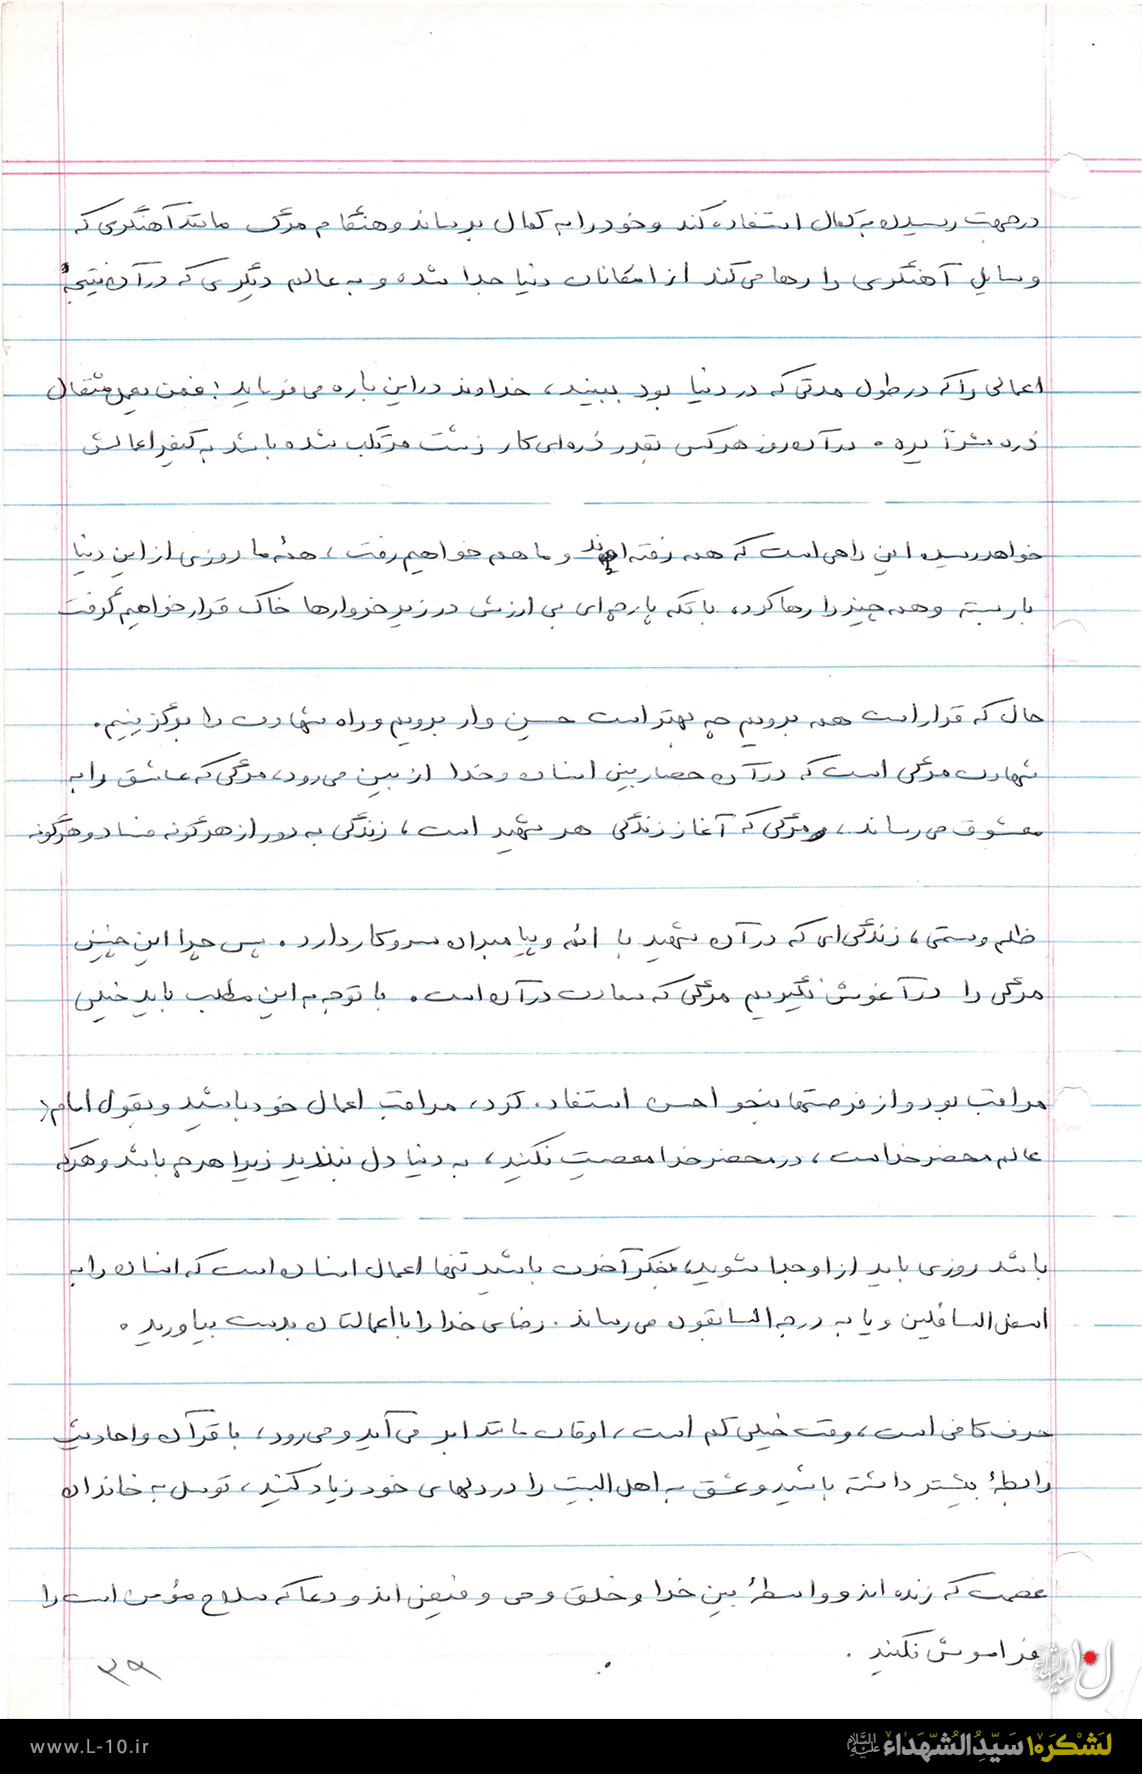 درجهت رسیدن به کمال استفاده کند و خود را به کمال برساند و هنگام مرگ مانند آهنگری که
وسایل آهنگری را رها می‌کند از امکانات دنیا جدا شده و به عالم دیگری که در آن نتیجهٔ
اعمالی را که در طول مدتی که در دنیا بود ببیند، خداوند در این باره می فرماید: فمن یعمل مثقال
ذره شراً یره. در آن روز هرکس بقدر ذره‌ای کار زشت مرتکب شده باشد به کیفر اعمالش
خواهد رسید. این راهی است که همه رفته اند و ما هم خواهیم رفت، همهٔ ما روزی از این دنیا
بار بسته و همه چیز را رها کرد، با تکه پارچه‌ای بی ارزش در زیر خروارها خاک قرار خواهیم گرفت
حال که قرار است همه برویم چه بهتر است حسین وار برویم و راه شهادت را برگزینیم.
شهادت مرگی است که در آن حصار بین انسان و خدا از بین می رود، مرگی که عاشق را به
معشوق می رساند، مرگی که آغاز زندگی هر شهید است، زندگی به دور از هرگونه فساد و هرگونه
ظلم و ستمی، زندگی‌ای که در آن شهید با ائمه و پیامبران سروکار دارد. پس چرا این چنین
مرگی را در آغوش نگیریم مرگی که سعادت در آن است. با توجه به این مطلب باید خیلی
مراقب بود و از فرصتها بنحو احسن استفاده کرد، مراقب اعمال خود باشید و بقول امام:
عالم محضر خداست، در محضر خدا معصیت نکنید، به دنیا دل نبندید زیرا هر چه باشد و هر که
باشد روزی باید از او جدا شوید، بفکر آخرت باشید تنها اعمال انسان است که انسان را به
اسفل السافلین و یا به درجه السابقون می رساند. رضای خدا را با اعمالتان بدست بیاورید.
حرف کافی است، وقت خیلی کم است، اوقات مانند ابر می آید و می رود، با قرآن و احادیث
رابطهٔ بیشتر داشته باشید و عشق به اهل البیت را در دلهای خود زیاد کنید، توسل به خاندان
عصمت که زنده اند و واسطهٔ بین خدا و خلق و حی و فیض اند و دعا که سلاح مؤمن است را
فراموش نکنید.
۳۹
www.L-10.ir
لشکر ۱۰ سیدالشهداء علیه السلام